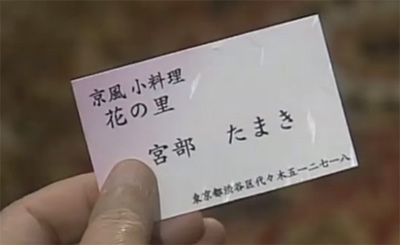 京風 小料理
花の里
宮部 たまき
東京都渋谷区代々木五一二七一八